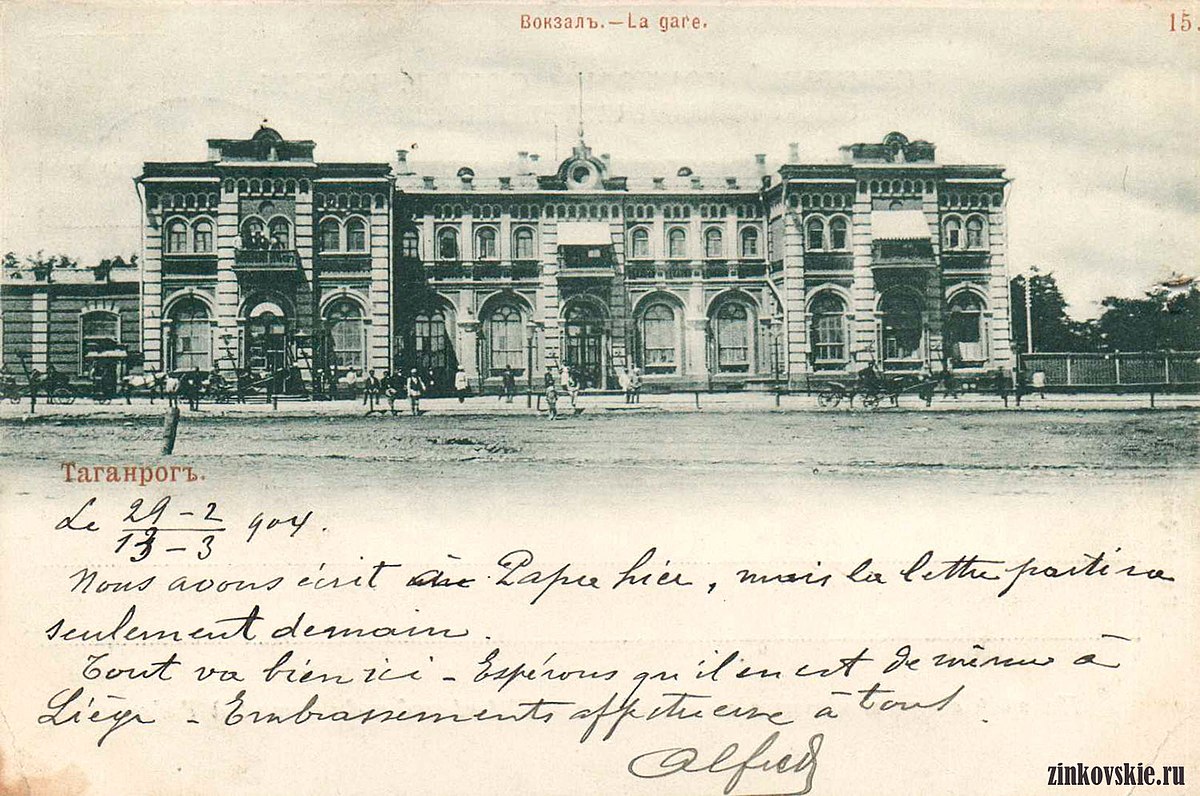 Вокзалъ.—La gare.
15.
Таганрогъ.
Le 29-2/13-3 904.
Nous avons écrit à Papa hier, mais la lettre partira
seulement demain.
Tout va bien ici - Espérons qu'il en est de même à
Liège - Embrassements affectueux à tous.
Alfred
zinkovskie.ru